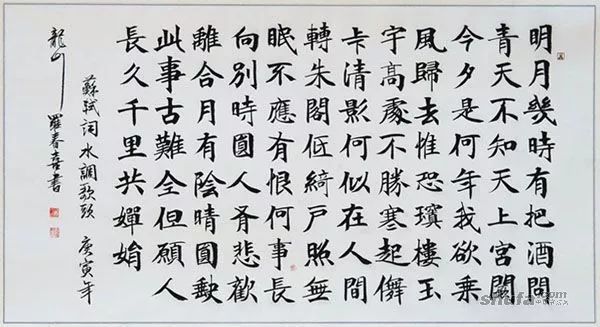 明月幾時有把酒問
青天不知天上宮闕
今夕是何年我欲乘
風歸去惟恐瓊樓玉
宇高處不勝寒起儛
卡清影何似在人間
轉朱閣低綺戶照無
眠不應有恨何事長
向別時圓人有悲歡
離合月有陰晴圓缺
此事古難全但願人
長久千里共嬋娟
蘇軾詞水調歌頭 庚寅年
羅春喜書